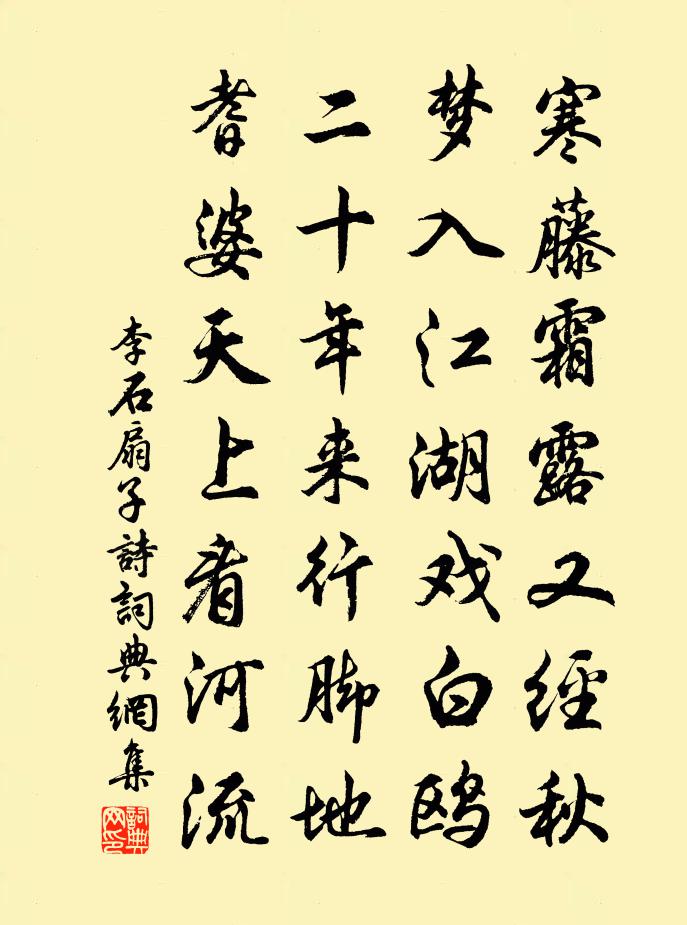 寒藤霜露又經秋
梦入江湖戏白鸥
二十年来行脚地
耆婆天上看河流
李石扇子詩詞典網集
詞典網印